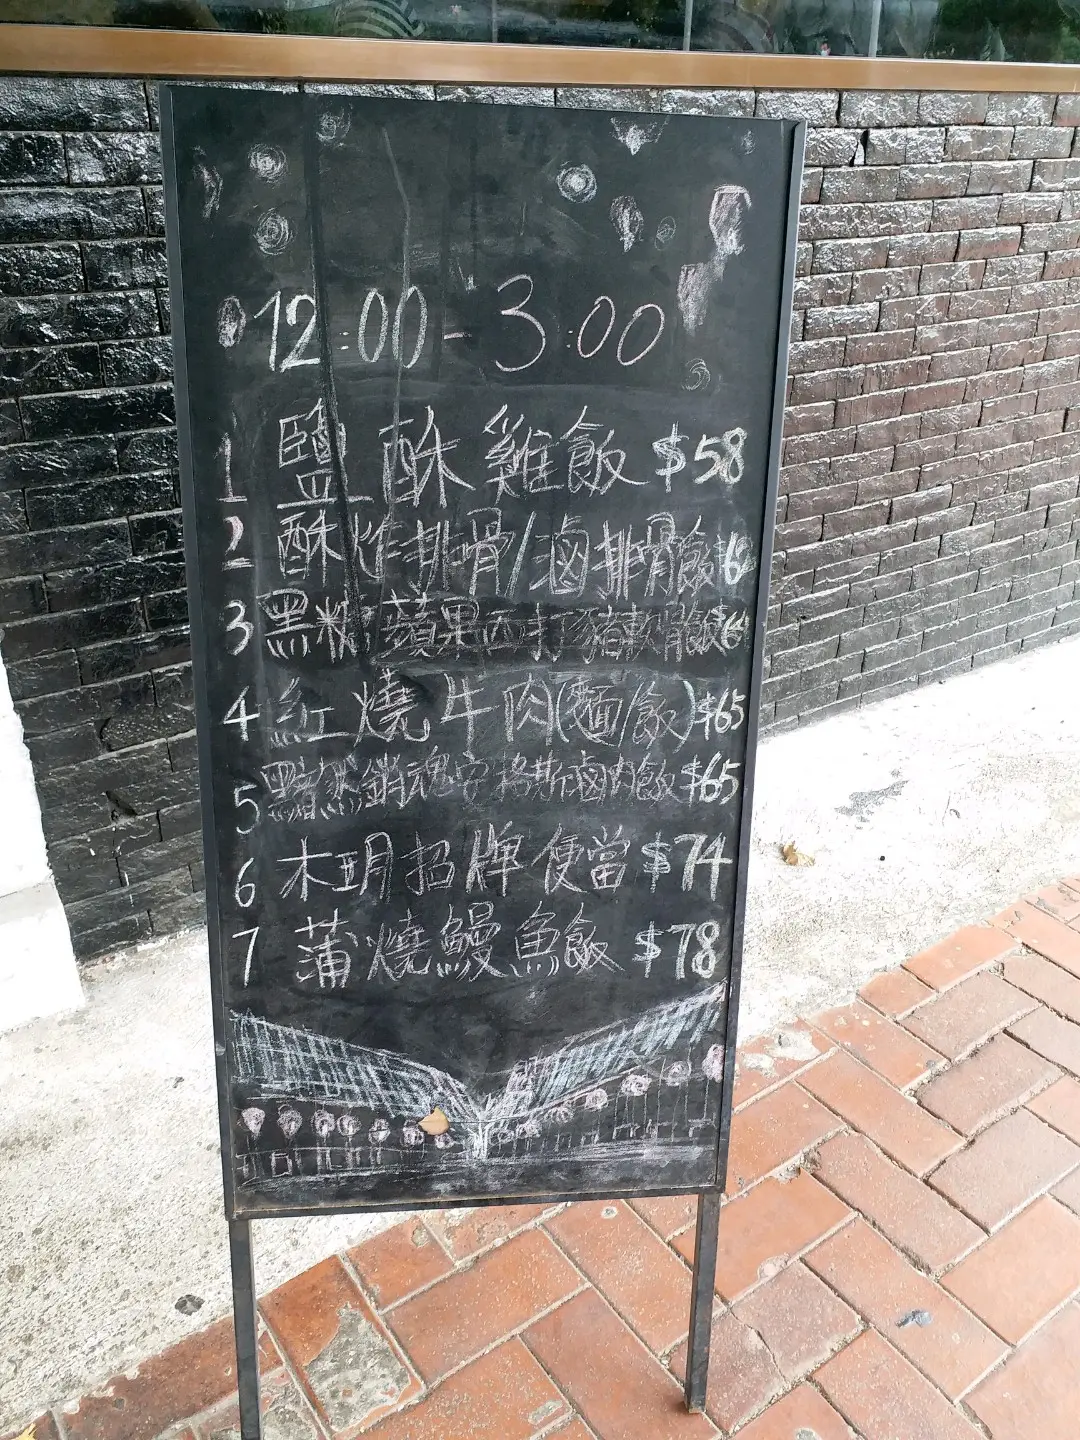 12:00-3:00
1 鹽酥雞飯 $58
2 酥炸排骨/滷排骨飯
3 黑糖蘋果西打豬軟骨飯
4 紅燒牛肉(麵/飯) $65
5 黯然銷魂安格斯滷肉飯 $65
6 木玥招牌便當 $74
7 蒲燒鰻魚飯 $78